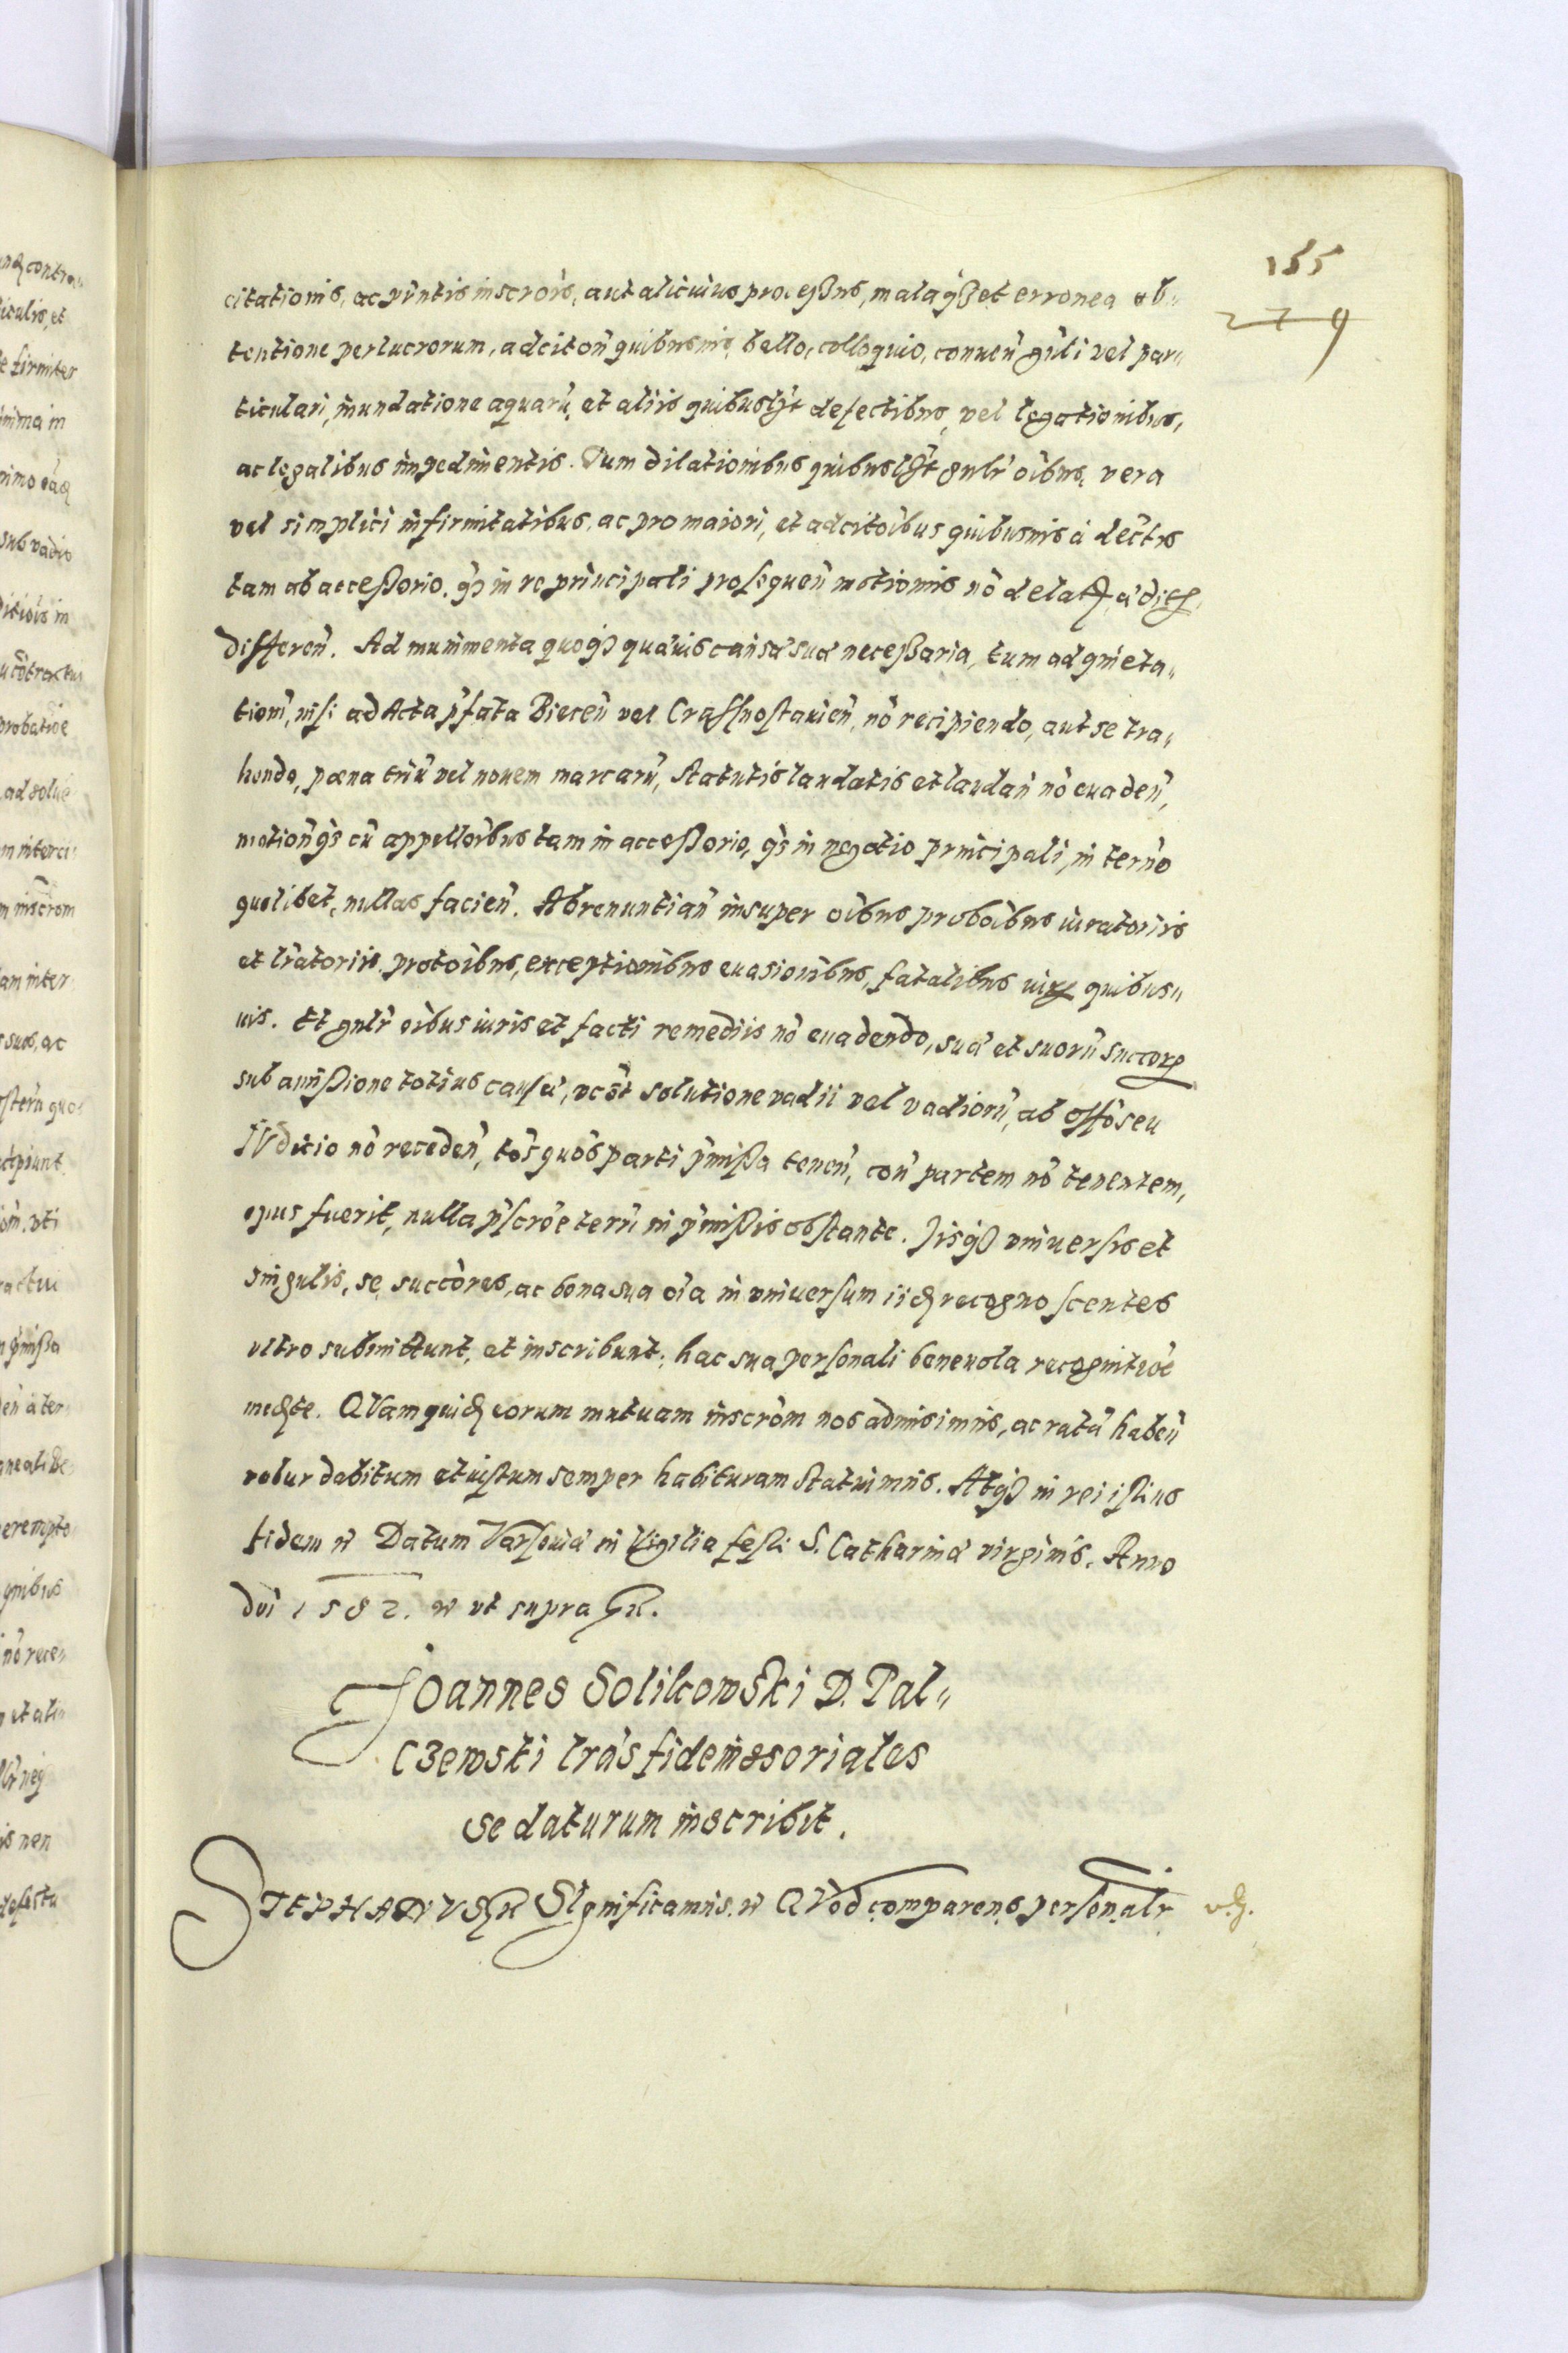 155
279
citationis, ac pñtis inscrois, aut alicuius processus, mala qz et erronea ob„
tentione perlucrorum, adciton̄ quibusuis, bello, colloquio, conuen̄ gñli vel par„
ticulari, inundatione aquarū, et aliis quibuslz̄t defectibus, vel legationibus,
ac legalibus impedimentis. Tum dilationibus quibuslz̄t gnlr̄ oībus, vera
vel simplici infirmitatibus, ac pro maiori, et adcitoībus quibusuis à dectis
tam ab accessorio, qz in re principali prosequen̄ motionis nō delatz
differen̄. Ad munimenta quoqz quæuis causæ suæ necessaria, tum ad quieta„
tiom̄, nisi ad Acta p̄fata Biecen̄ vel Crassnostauien̄, nō recipiendo, aut se tra„
hendo, pœna triū vel nouem marcarū, statutis laudatis et laudan̄ nō euaden̄,
motion̄qs cū appelloībus tam in accessorio, qs in negotio principali, in term̄o
quolibet, nullas facien̄. Abrenuntian̄ insuper oībus proboībus iuratoriis
et lratoriis, protoībus, exceptionibus euasionibus, fatalibus iurz quibus„
uis. Et gnlr̄ oībus iuris et facti remediis nō euadendo, suæ et suorū succorz
sub amissione totius causæ, ac solutione vadii vel vadiorū, ab offō seu
IVdicio nō receden̄, tos quos parti p̄missa tenen̄, con̄ partem nō tenentem,
opus fuerit, nulla p̄scroe terrī in p̄missis obstante. Iisqz vniuersis et
singulis, se, succores, ac bona sua oīa in vniuersum iidz recognoscentes
vltro submittunt, et inscribunt, hac sua personali beneuola recognitioē
medzte. QVam quidz eorum mutuam inscrōm nos admisimus, ac ratā haben̄
robur debitum et iustum semper habituram statuimus. Atqz in rei istius
fidem Datum Varsouiæ in Vigilia festi S. Catharinæ virginis. Anno
dni 1582. ut supra
Joannes Solikowski D. Pal„
czewski lrās fideiussoriales
se daturum inscribit.
STEPHANVS SIgnificamus. QVod comparens personalr̄